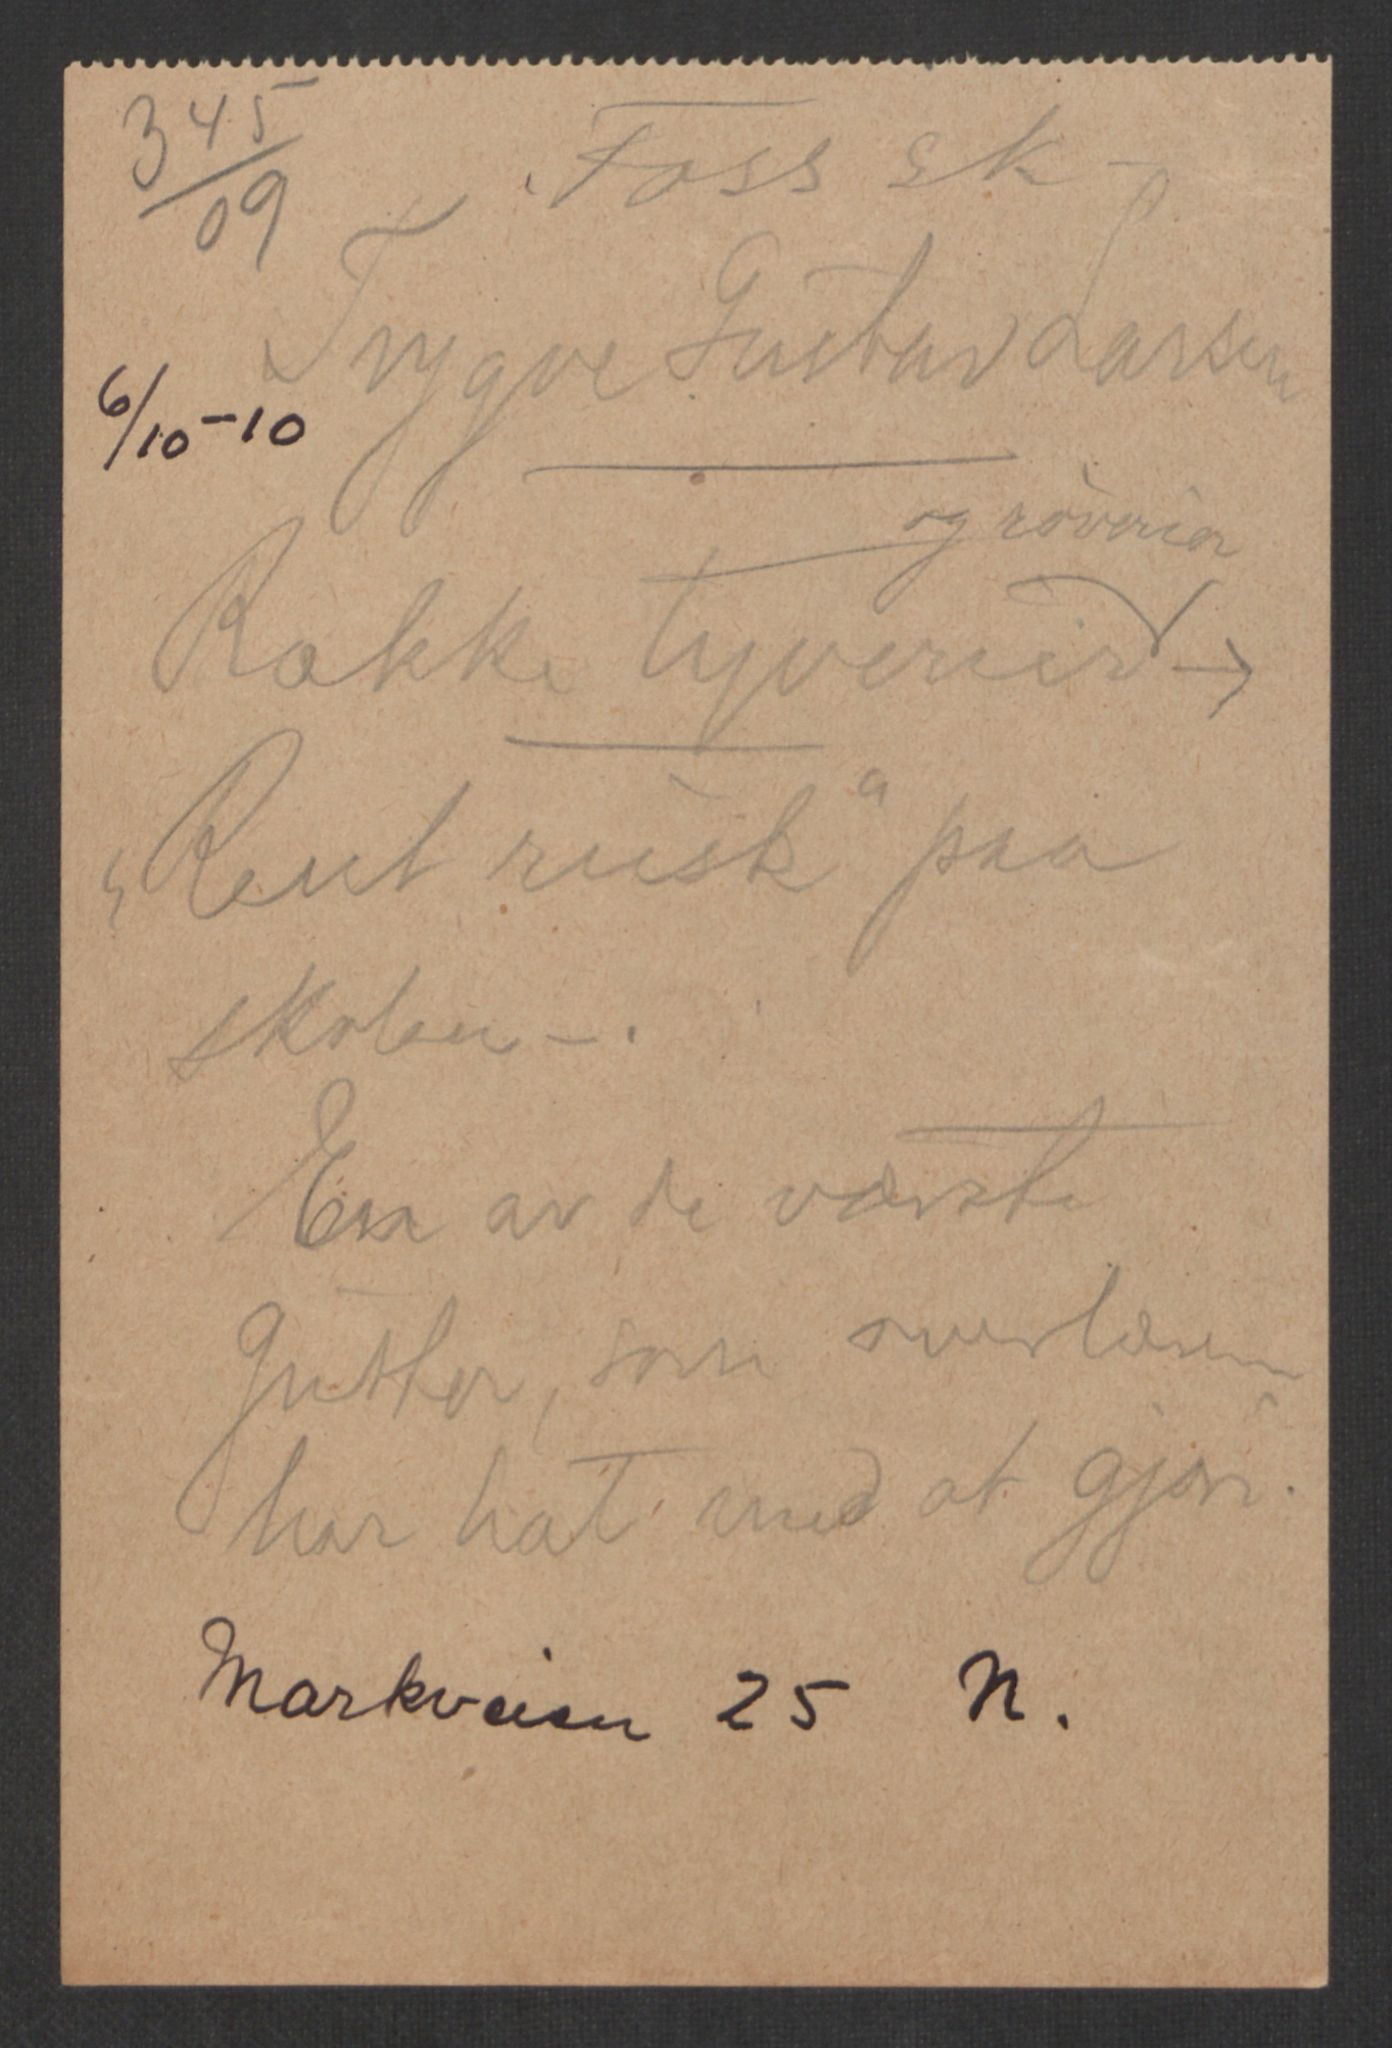 345/09
Foss sk.
Trygve Gustav Larsen
6/10-10
og röverier
Række tyverier →
„Rent rusk" paa
skolen -.
En av de værste
gutter, som overlæreren
har hat med at gjøre.
Markveien 25 N.